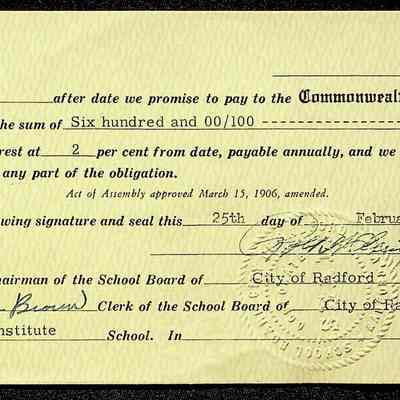 after date we promise to pay to the Commonweal
he sum of Six hundred and 00/100 ----------------
rest at 2 per cent from date, payable annually, and we
any part of the obligation.
Act of Assembly approved March 15, 1906, amended.
wing signature and seal this 25th day of Februa
hairman of the School Board of City of Radford
Brown Clerk of the School Board of City of Ra
nstitute School. In